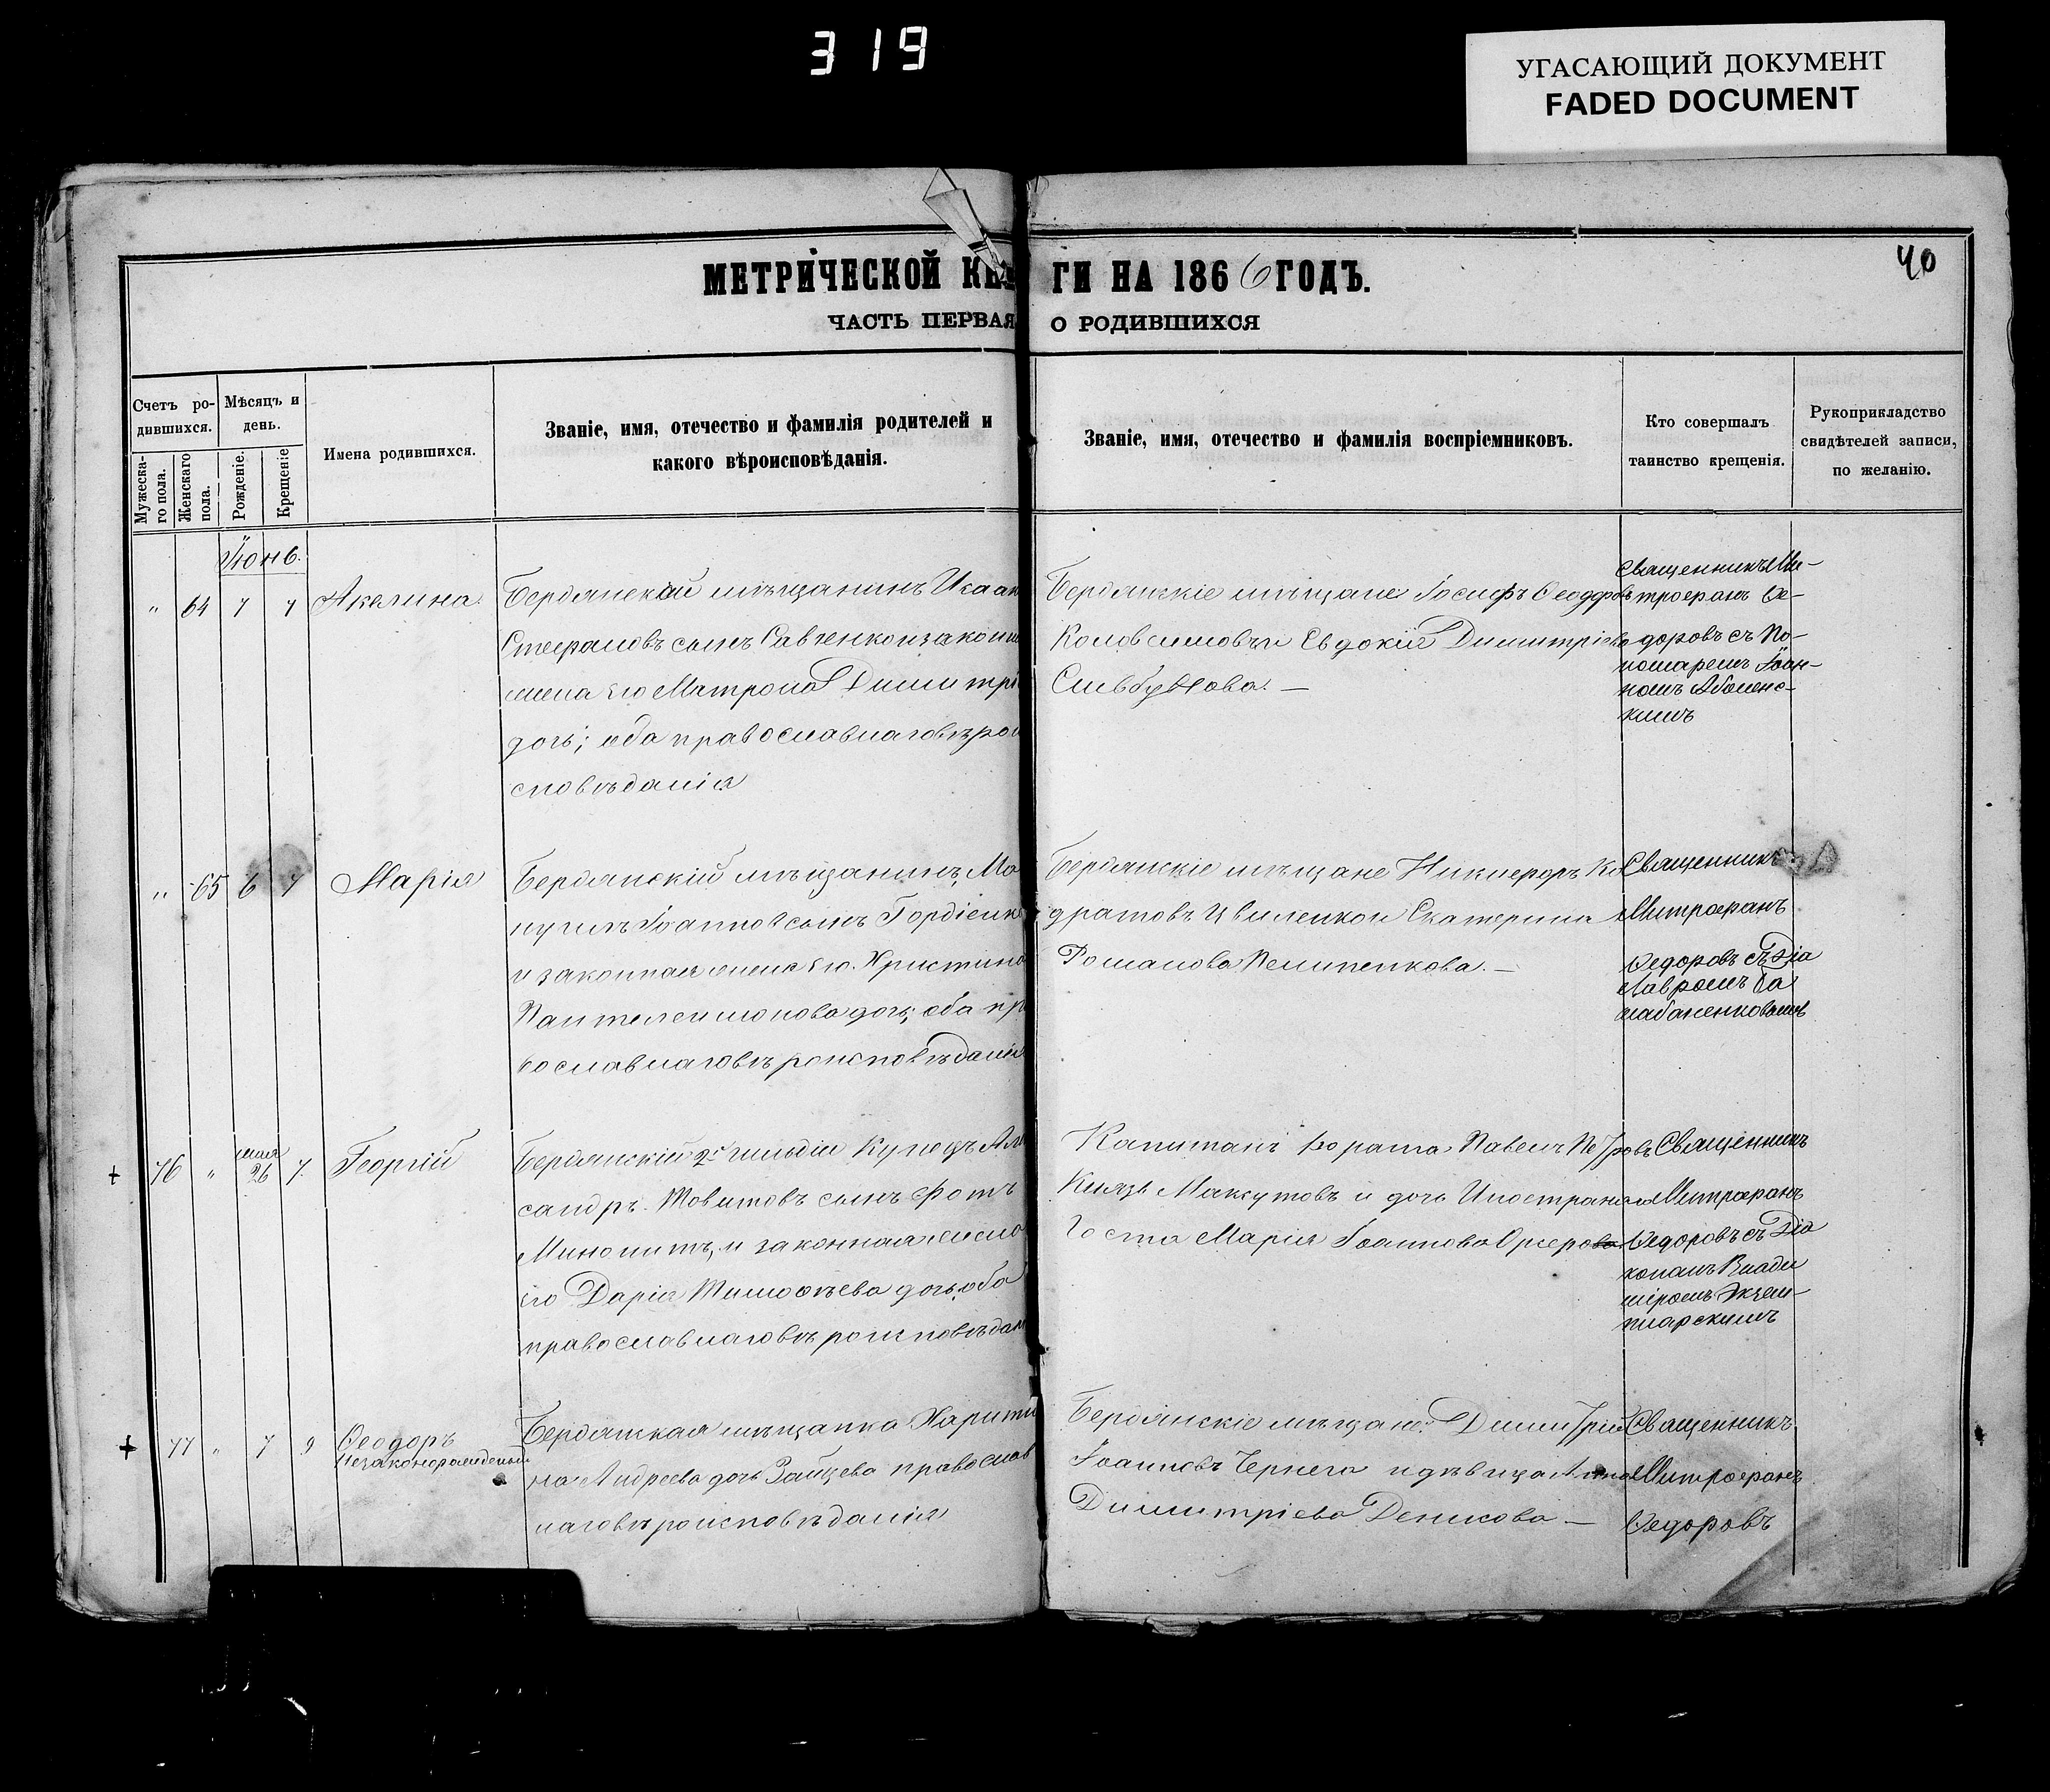 319
УГАСАЮЩИЙ ДОКУМЕНТ
FADED DOCUMENT
40
МЕТРИЧЕСКОЙ КНИ ГИ НА 1866 ГОДЪ.
ЧАСТЬ ПЕРВАЯ О РОДИВШИХСЯ
Счетъ ро-
дившихся.
Мужеска-
го пола.
Женскаго
пола.
Мѣсяцъ и
день.
Рожденіе.
Крещеніе
Имена родившихся.
Званіе, имя, отечество и фамилія родителей и
какого вѣроисповѣданія.
Званіе, имя, отечество и фамилія воспріемниковъ.
Кто совершалъ
таинство крещенія.
Рукоприкладство
свидѣтелей записи,
по желанію.
Іюнь.
" 64 7 7 Акелина.
Бердянскій мѣщанинъ Исаак
Стефановъ сынъ Савченко и закон
жена его Матрона Димитрі
дочь; оба православнаго вѣрои
сповѣданія
Бердянскіе мѣщане Іосифъ Феодоровъ
и Евдокія Димитріева
Священникъ Ми-
трофанъ Фе-
доровъ съ по-
номаремъ Іоан-
номъ
" 65 6 7 Марія
Бердянскій мѣщанинъ Ма
нуилъ Іоанновъ сынъ Гордіенко
и законная жена его Христина
Пантелеимонова дочь; оба пр
вославнаго вѣроисповѣданія
Бердянскіе мѣщане Никифоръ Ко
дратовъ Цвиленко и Екатерина
Романова Пилипенкова. —
Священникъ
Митрофанъ
Федоровъ съ Діа
76 " мая 26 7. Георгій
Бердянскій 2й гильдіи купецъ Але
сандръ Товитовъ сынъ Фотъ
и законная жена
его Дарія Тимофѣева дочь, оба
православнаго вѣроисповѣдан
Капитанъ Павелъ Петровъ
Князь Максутовъ и дочь Иностраннаго
Гостя Марія Іоаннова
Священникъ
Митрофанъ
Федоровъ съ Діа
кономъ Влади
міромъ Экзем-
плярскимъ
77 " 7 9 Феодоръ
Незаконорожденный
Бердянская мѣщанка Харити
на Андреева дочь Зайцева православ
наго вѣроисповѣданія
Бердянскіе мѣщане: Димитрій
Іоанновъ Чернега и дѣвица Анна
Димитріева Денисова —
Священникъ
Митрофанъ
Федоровъ